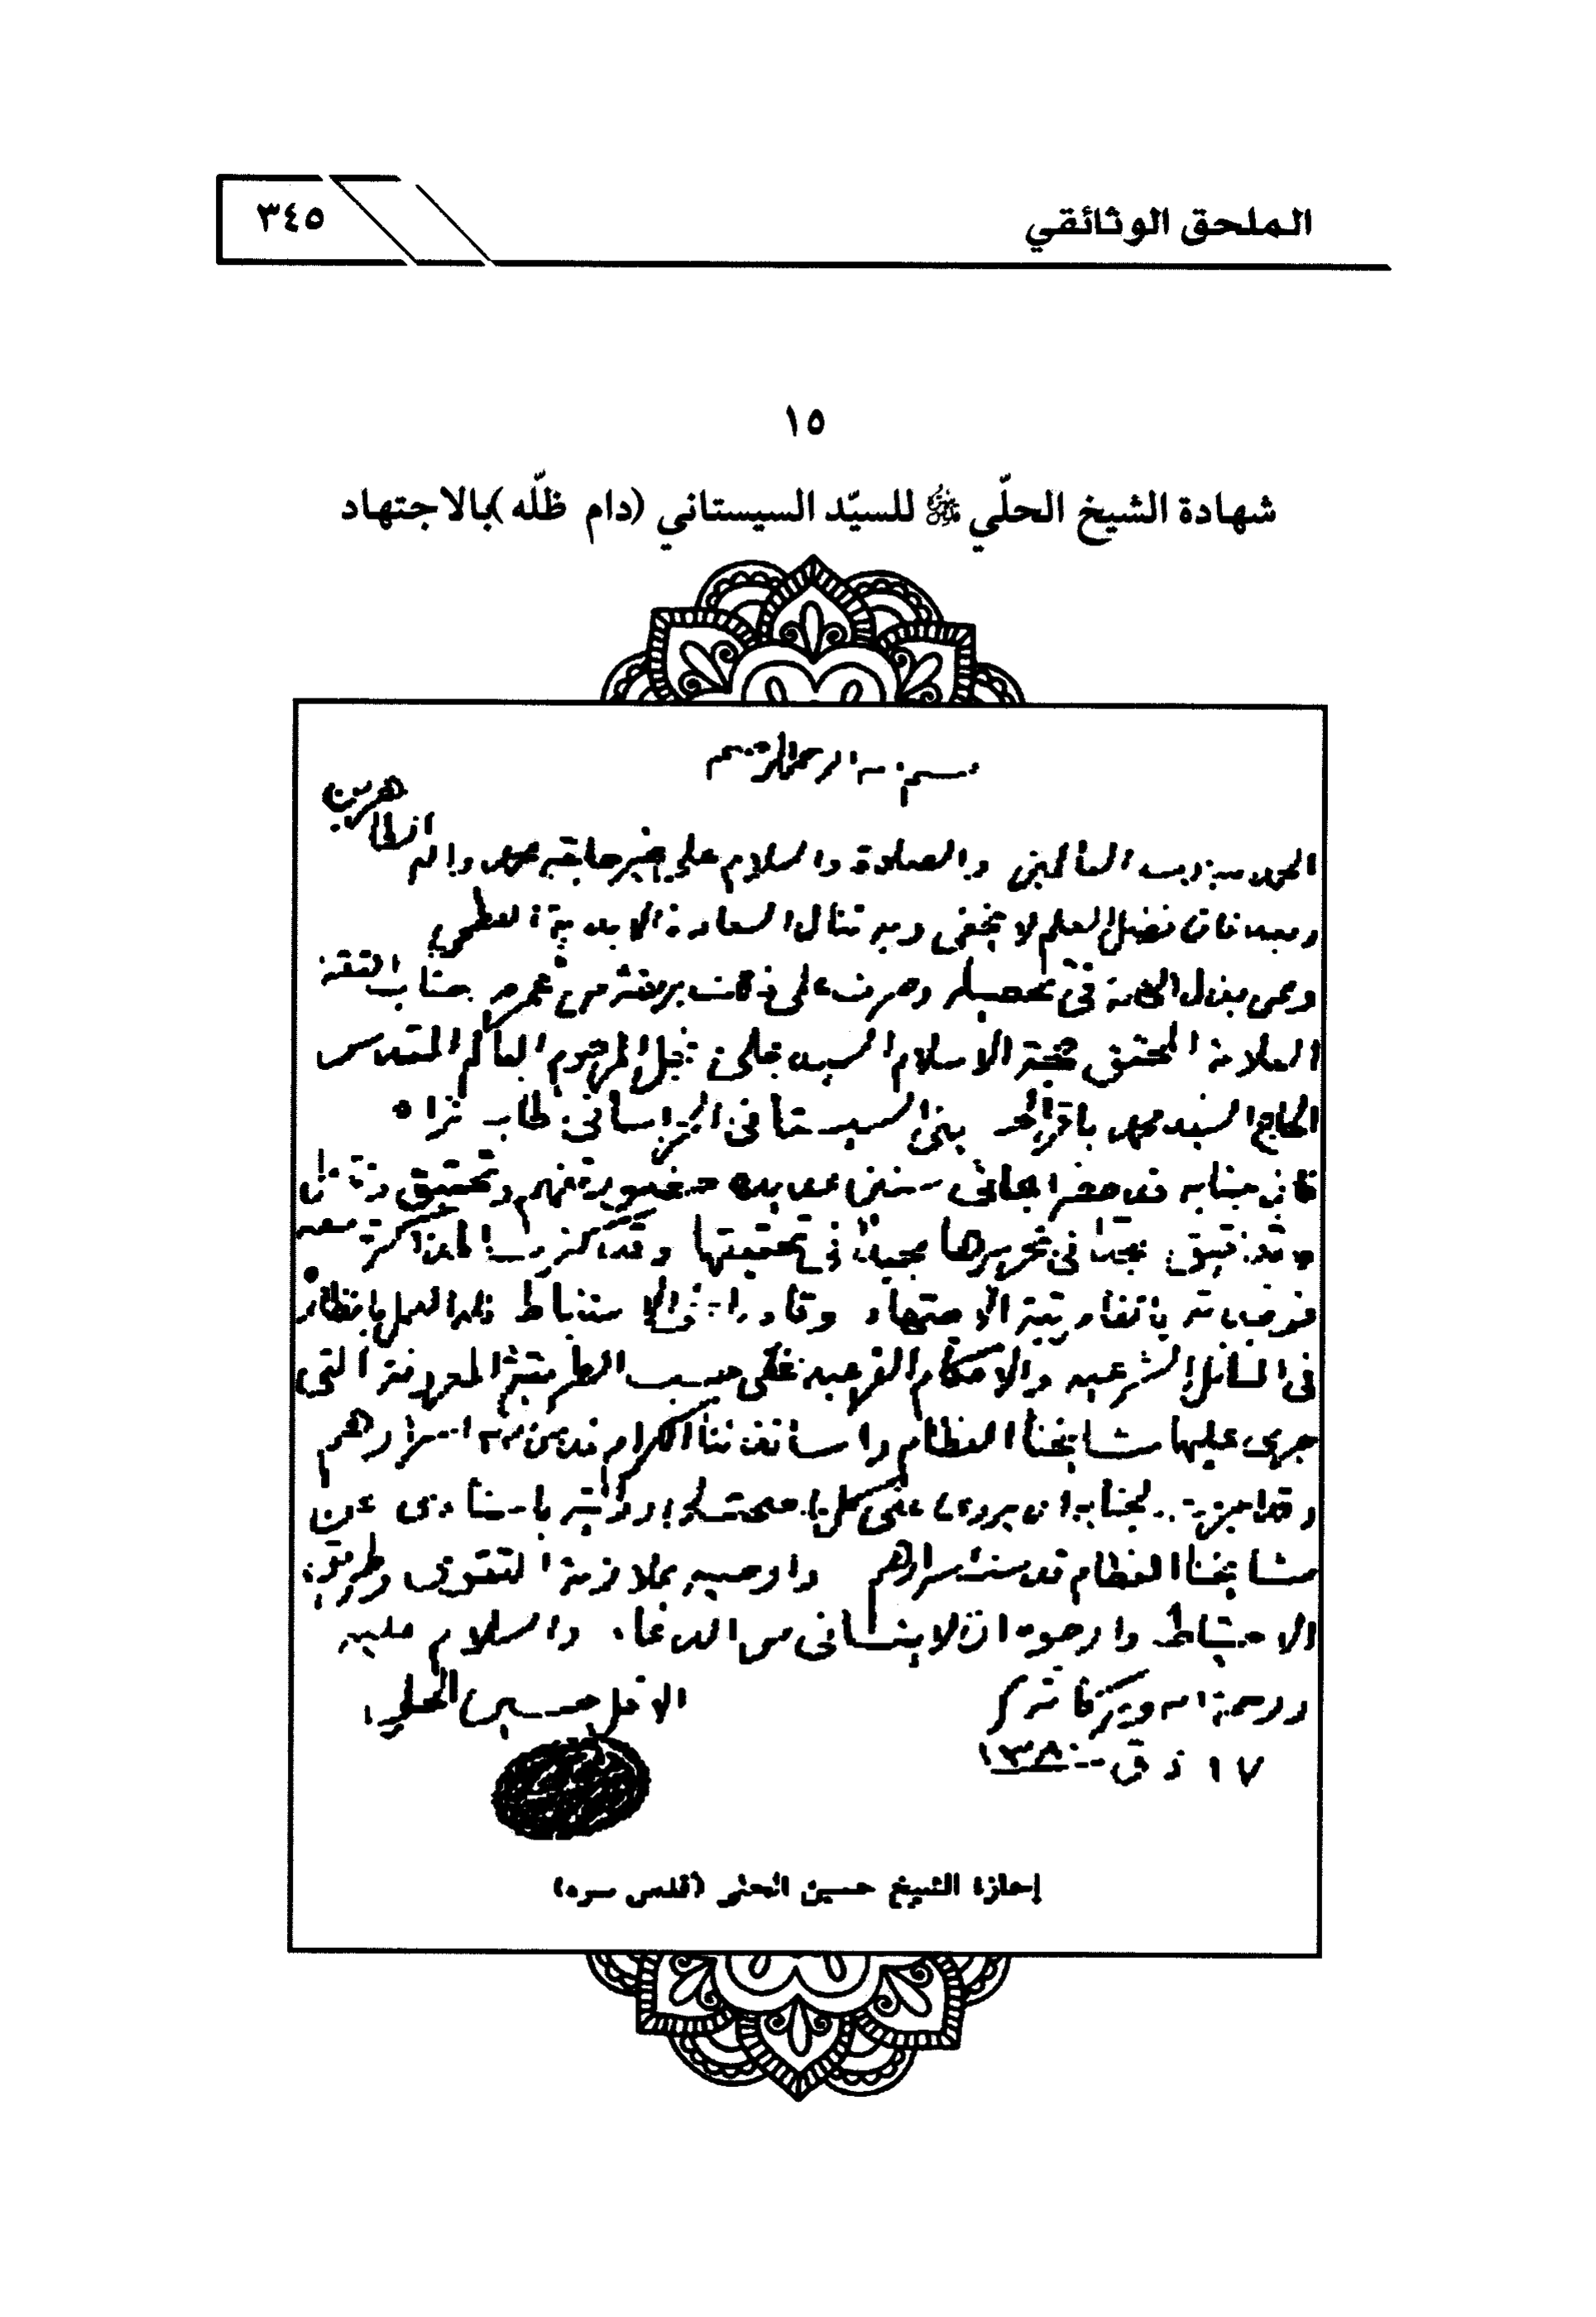 الملحق الوثائقي
٣٤٥
١٥
شهادة الشيخ الحلّي للسيّد السيستاني (دام ظلّه) بالاجتهاد
بسم الله الرحمن الرحيم
الحمد لله رب العالمين والصلاة والسلام على خير خلقه محمد واله الطاهرين
وبعد فان فضل العلم لا يخفى وبه تنال السعادة الابدية العظمى
وممن بذل الهمة في تحصيله وصرف على ذلك برهة من عمره جناب الثقة
العلامة المحقق حجة الاسلام السيد علي نجل المرحوم العالم المقدس
الحاج السيد محمد باقر السيستاني الخراساني طاب ثراه
فان جنابه قد حضر ابحاثي سنين عديدة حضور تفهم وتحقيق
وتدقيق مجدا في تحريرها مجيدا في تحقيقها وقد كثرت المذاكرة معه
فوجدته رتبة الاجتهاد وقادرا على الاستنباط فله العمل بانظاره
في المسائل الشرعيه والاحكام الفرعيه على حسب الطريقة المعروفة التي
جرى عليها مشايخنا العظام واساتذتنا الكرام قدس الله اسرارهم
وقد اجزت لجنابه ان يروي عني كل ما صحت لي روايته باسنادي عن
مشايخنا العظام قدست اسرارهم واوصيه بملازمة التقوى وطريق
الاحتياط وارجوه ان لا ينساني من الدعاء والسلام عليه
ورحمة الله وبركاته
الاقل حسين الحلي
١٧ ذ ق ١٣٨٠
إجازة الشيخ حسين الحلي (قدس سره)